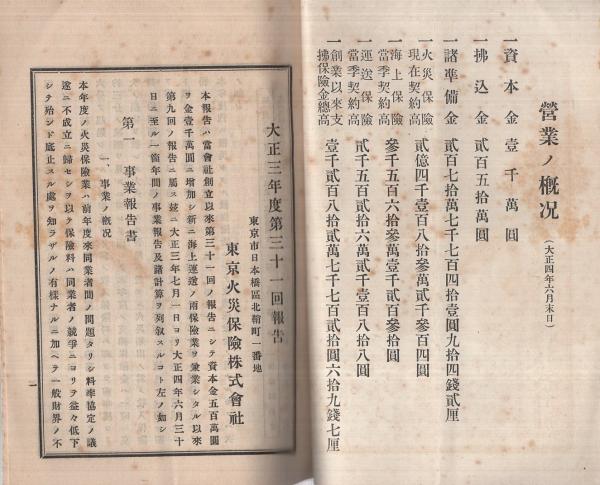 營業ノ概況 (大正四年六月末日)
一資本金 壹千萬圓
一拂込金 貳百五拾萬圓
一諸準備金 貳百七拾萬七千七百四拾壹圓九拾四錢貳厘
一火災保險現在契約高 貳億四千壹百八拾參萬貳千參百四圓
一海上保險當季契約高 參千五百六拾參萬壹千貳百參拾圓
一運送保險當季契約高 貳千五百貳拾六萬貳千壹百八拾八圓
一創業以來支拂保險金總高 壹千貳百八拾貳萬七千七百貳拾圓六拾九錢七厘
大正三年度第三十一回報告
東京市日本橋區北鞘町一番地
東京火災保險株式會社
本報告ハ當會社創立以來第三十一回ノ報告ニシテ資本金五百萬圓
ヲ金壹千萬圓ニ增加シ新ニ海上運送ノ兩保險業ヲ兼業シタル以來
第九回ノ報告ニ屬ス玆ニ大正三年七月一日ヨリ大正四年六月三十
日ニ至ル一箇年間ノ事業報告及諸計算ヲ列叙スルコト左ノ如シ
第一 事業報告書
一、事業ノ概況
本年度ノ火災保險業ハ前年度來同業者間ノ問題タリシ料率協定ノ議
遂ニ不成立ニ歸セシヲ以テ保險料ハ同業者ノ競爭ニヨリテ益々低下
シテ殆ンド底止スル處ヲ知ラザルノ有樣ナルニ加ヘテ一般財界ノ不
一